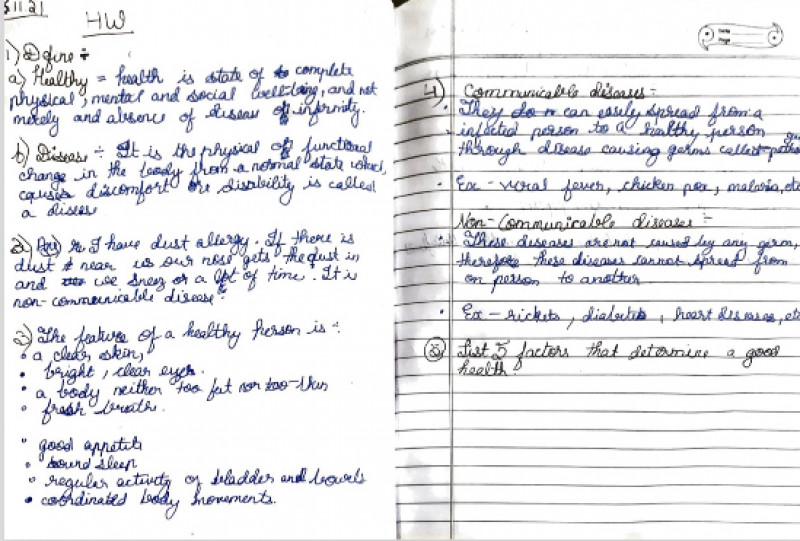 11.21
HW
1) Define ÷
a) Healthy = health is state of complete
physical, mental and social well-being, and not
merely and absence of disease of infirmity.
b) Disease ÷ It is the physical of functional
change in the body from a normal state which
causes discomfort or disability is called
a disease
2) Ans I have dust allergy. If there is
dust near us our nose gets the dust in
and we sneez or a lot of time. It is
non-communicable disease.
3) The feature of a healthy Person is ÷
• a clear skin,
• bright, clear eyes.
• a body neither too fat nor too-thin
• fresh breath.
• good appetite
• sound sleep
• regular activity of bladder and bowels
• coordinated body movements.
Date
Page
4) Communicable diseases -
• They do n can easily spread from a
infected person to a healthy person
through disease causing germs called
• Ex - viral fever, chicken pox, malaria, etc
Non-Communicable diseases -
These diseases are not caused by any germ,
therefore these diseases cannot spread from
on person to another
• Ex - rickets, diabetes, heart diseases, etc
5) List 5 factors that determine a good
health